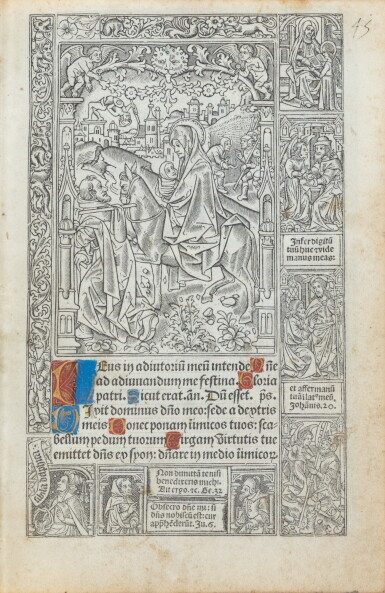 45
Infer digitū
tuū huc ⁊ vide
manus meas:
et affer manū
tuā ⁊ lat⁹ meū.
Johānis. 20.
Deus in adiutoriū meū intende Dñe
ad adiuvandum me festina. Gloria
patri. Sicut erat. añ. Dū esset. p̄s.
Dixit dominus dño meo: sede a dextris
meis Donec ponam inimicos tuos: sca-
bellum pedum tuorum Virgam virtutis tue
emittet dñs ex syon: dñare in medio inimicor.
Non dimittā te nisi
benedixeris michi.
Ait ergo. ⁊c. Ge. 32
Obsecro dñe mi: si
dñs nobiscū est: cur
appheđerūt. Ju. 6.